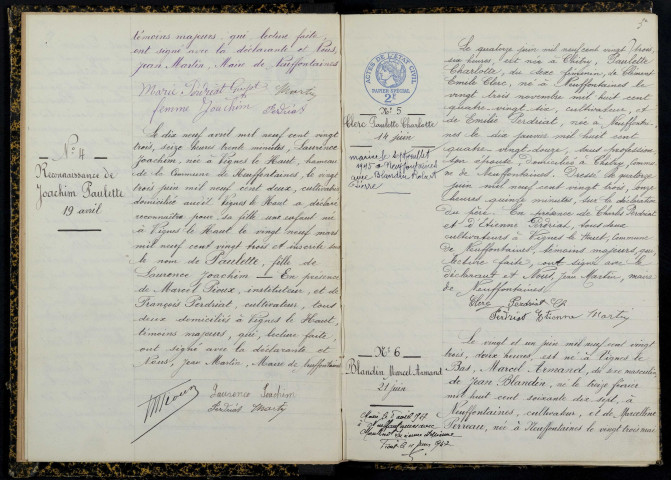 témoins majeurs, qui, lecture faite,
ont signé avec la déclarante et Nous,
Jean Martin, Maire de Neuffontaines
Marie Perdriat
Marty
femme Joachim
Perdriat
N° 4
Reconnaissance de
Joachim Paulette
19 avril
Le dix neuf avril mil neuf cent vingt
trois, seize heures trente minutes, Laurence
Joachim, née à Vignes le Haut, hameau
de la Commune de Neuffontaines, le vingt
trois juin mil neuf cent deux, cultivatrice
domiciliée audit Vignes le Haut a déclaré
reconnaître pour sa fille une enfant née
à Vignes le Haut le vingt neuf mars
mil neuf cent vingt trois et inscrite sous
le nom de Paulette, fille de
Laurence Joachim — En présence
de Marcel Pioux, instituteur, et de
François Perdriat, cultivateur, tous
deux domiciliés à Vignes le Haut,
témoins majeurs, qui, lecture faite,
ont signé avec la déclarante et
Nous, Jean Martin, Maire de Neuffontaines
Laurence Joachim
Perdriat Marty
5
ACTES DE L'ÉTAT CIVIL
PAPIER SPÉCIAL
2F
N° 5
Clerc Paulette Charlotte
14 juin
Le quatorze juin mil neuf cent vingt trois,
six heures, est née à Chitry, Paulette
Charlotte, du sexe féminin, de Clément
Emile Clerc, né à Neuffontaines le
vingt trois novembre mil huit cent
quatre vingt six, cultivateur, et
de Perdriat, née à Neuffontai-
nes le dix janvier mil huit cent
quatre-vingt douze, sans profession,
son épouse, domiciliés à Chitry, commune
de Neuffontaines. Dressé le quatorze
juin mil neuf cent vingt trois, onze
heures quinze minutes, sur la déclaration
du père. En présence de Charles Perdriat
et d'Etienne Perdriat, tous deux
cultivateurs à Vignes le Haut, commune
de Neuffontaines, témoins majeurs, qui,
lecture faite, ont signé avec le
déclarant et Nous, Jean Martin, maire
de Neuffontaines.
Clerc Perdriat Ch
Perdriat Etienne Marty
N° 6
Blandin Marcel Armand
21 juin
Le vingt et un juin mil neuf cent vingt
trois, deux heures, est né à Vignes le
Bas, Marcel Armand, du sexe masculin,
de Jean Blandin, né le treize février
mil huit cent soixante dix sept, à
Neuffontaines, cultivateur, et de Marcelline
Perreau, née à Neuffontaines le vingt trois mai